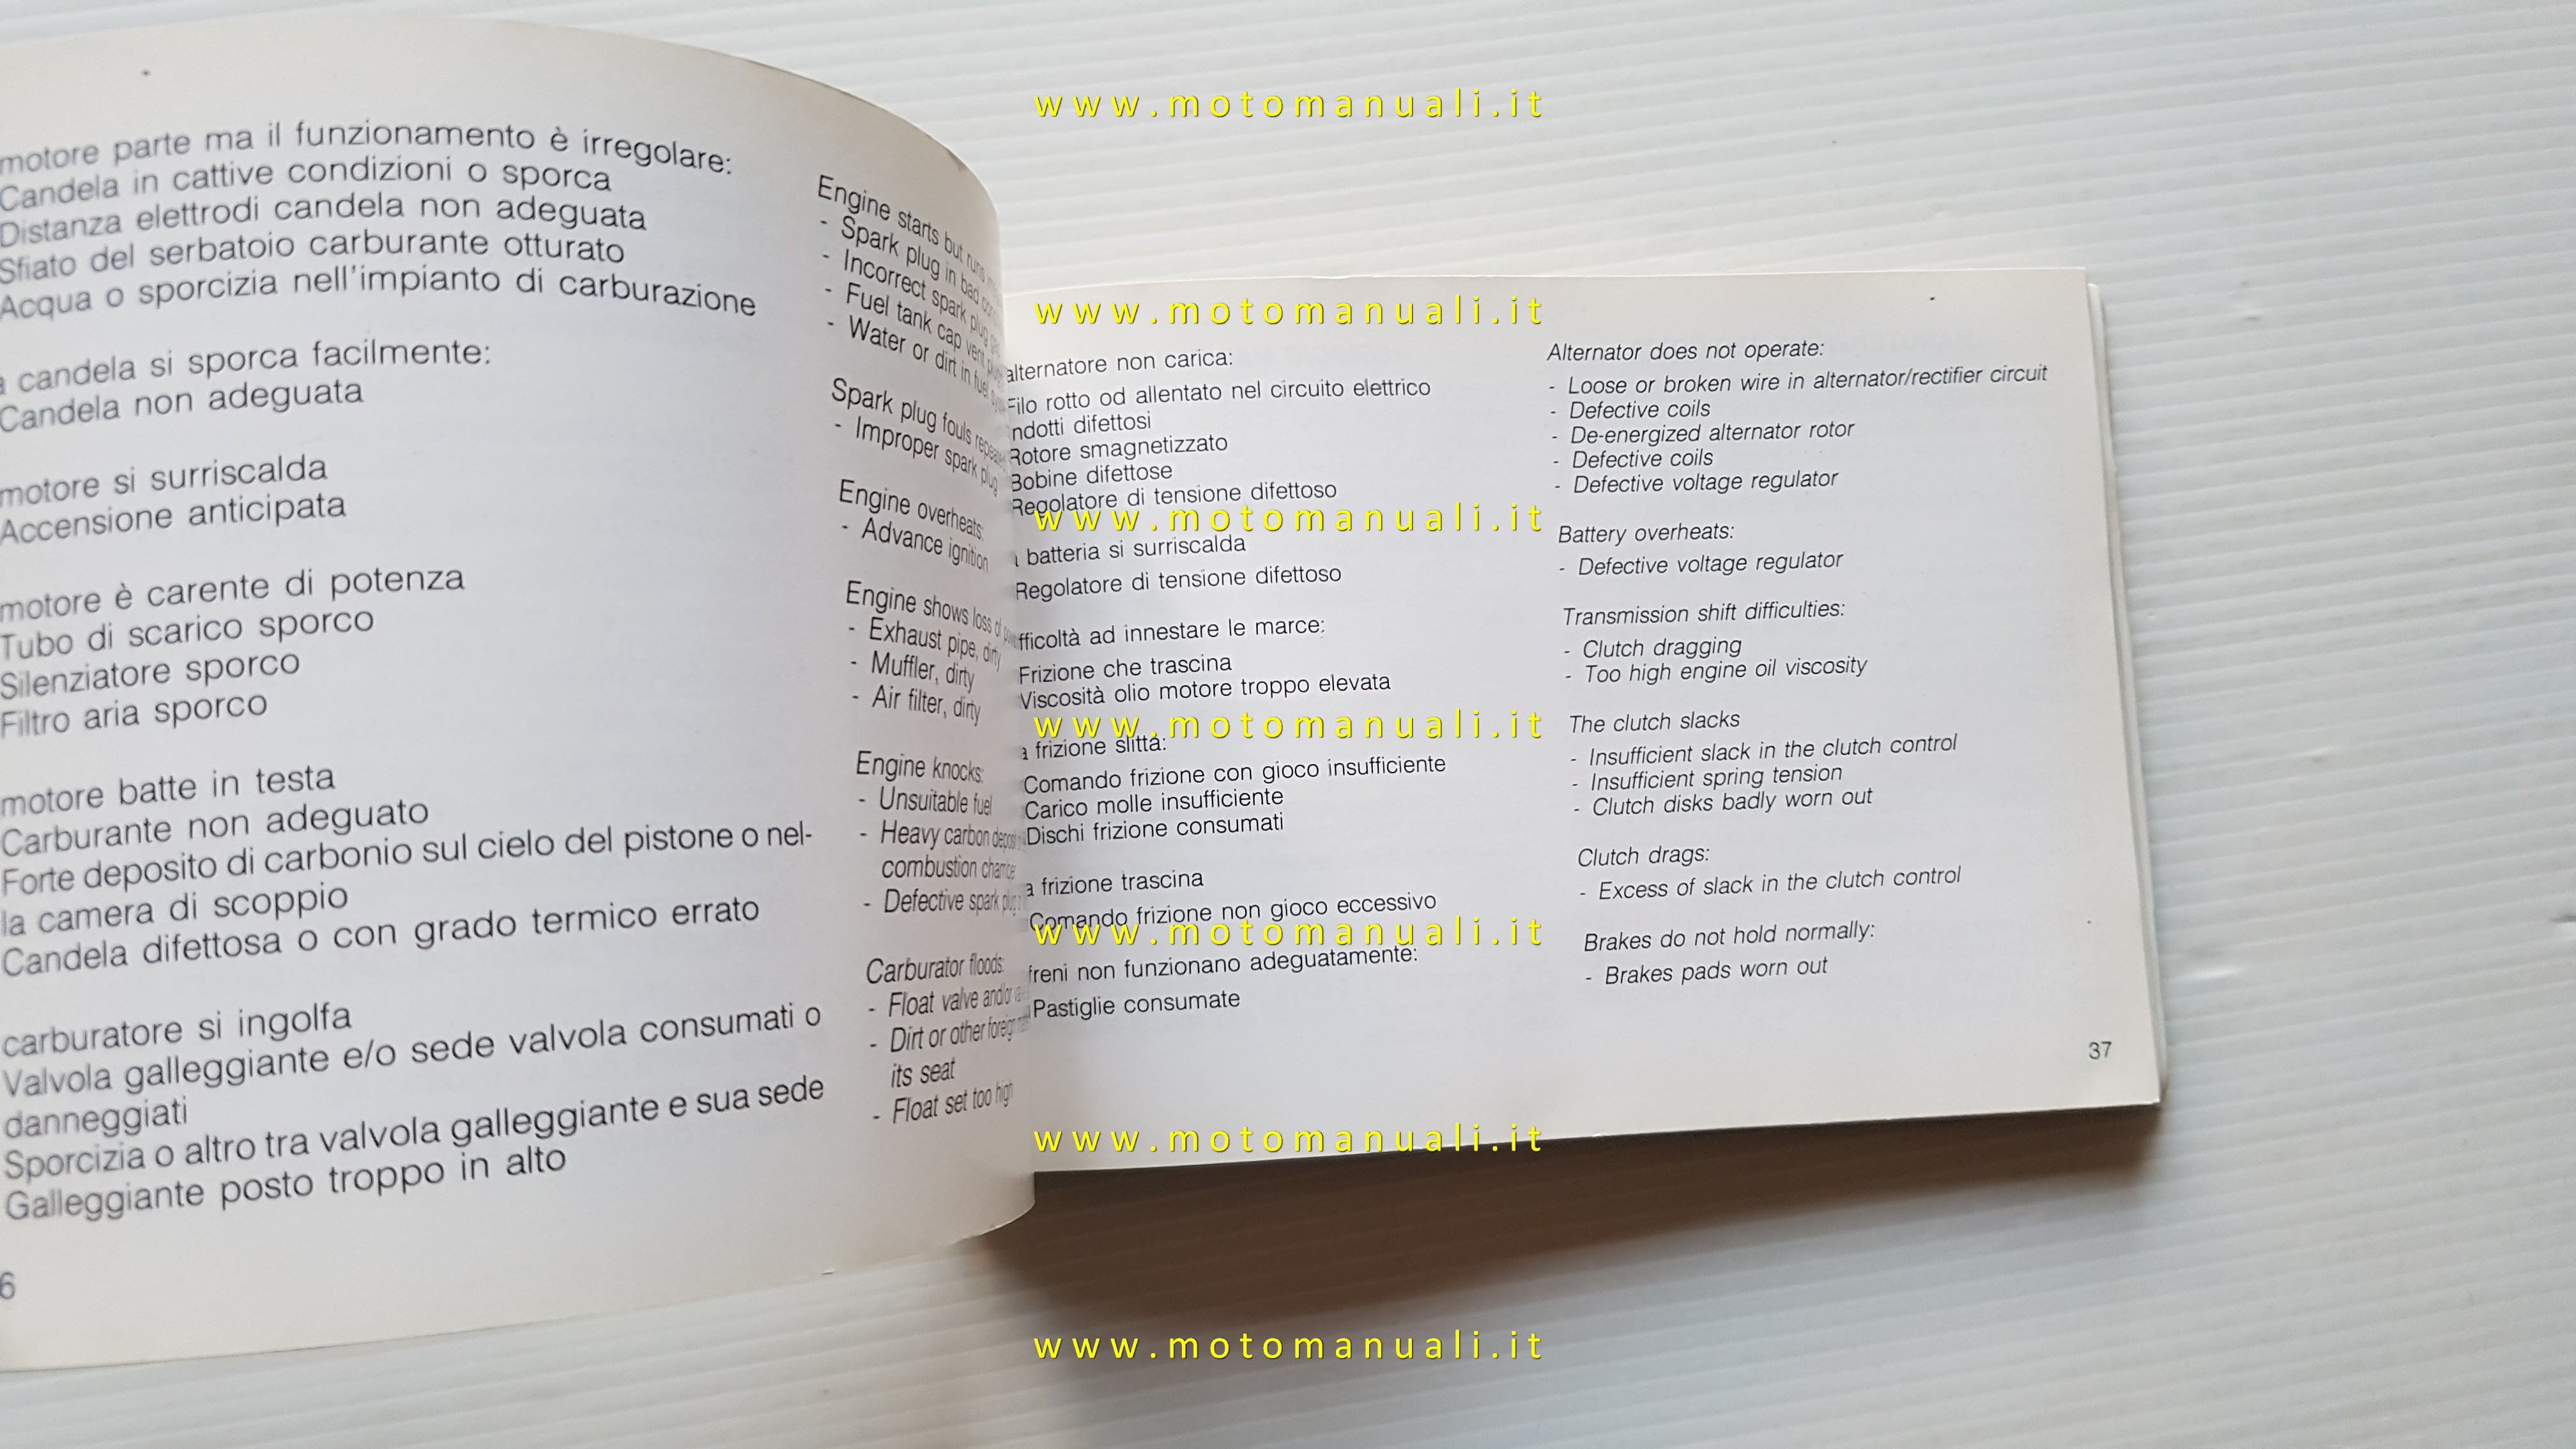 motore parte ma il funzionamento è irregolare:
Candela in cattive condizioni o sporca
Distanza elettrodi candela non adeguata
Sfiato del serbatoio carburante otturato
Acqua o sporcizia nell'impianto di carburazione
candela si sporca facilmente:
Candela non adeguata
motore si surriscalda
Accensione anticipata
motore è carente di potenza
Tubo di scarico sporco
Silenziatore sporco
Filtro aria sporco
motore batte in testa
Carburante non adeguato
Forte deposito di carbonio sul cielo del pistone o nel-
la camera di scoppio
Candela difettosa o con grado termico errato
carburatore si ingolfa
Valvola galleggiante e/o sede valvola consumati o
danneggiati
Sporcizia o altro tra valvola galleggiante e sua sede
Galleggiante posto troppo in alto
6
Engine starts but runs
- Spark plug in bad
- Incorrect spark plug
- Fuel tank cap vent
- Water or dirt in fuel
Spark plug fouls
- Improper spark plug
Engine overheats:
- Advance ignition
Engine shows loss of
- Exhaust pipe, dirty
- Muffler, dirty
- Air filter, dirty
Engine knocks:
- Unsuitable fuel
- Heavy carbon
combustion chamber
- Defective spark plug
Carburator floods:
- Float valve and/or
- Dirt or other foreign
its seat
- Float set too high
alternatore non carica:
Filo rotto od allentato nel circuito elettrico
ndotti difettosi
Rotore smagnetizzato
Bobine difettose
Regolatore di tensione difettoso
batteria si surriscalda
Regolatore di tensione difettoso
fficoltà ad innestare le marce:
Frizione che trascina
Viscosità olio motore troppo elevata
a frizione slitta:
Comando frizione con gioco insufficiente
Carico molle insufficiente
Dischi frizione consumati
a frizione trascina
Comando frizione non gioco eccessivo
freni non funzionano adeguatamente:
Pastiglie consumate
Alternator does not operate:
- Loose or broken wire in alternator/rectifier circuit
- Defective coils
- De-energized alternator rotor
- Defective coils
- Defective voltage regulator
Battery overheats:
- Defective voltage regulator
Transmission shift difficulties:
- Clutch dragging
- Too high engine oil viscosity
The clutch slacks
- Insufficient slack in the clutch control
- Insufficient spring tension
- Clutch disks badly worn out
Clutch drags:
- Excess of slack in the clutch control
Brakes do not hold normally:
- Brakes pads worn out
37
www.motomanuali.it
www.motomanuali.it
www.motomanuali.it
www.motomanuali.it
www.motomanuali.it
www.motomanuali.it
www.motomanuali.it